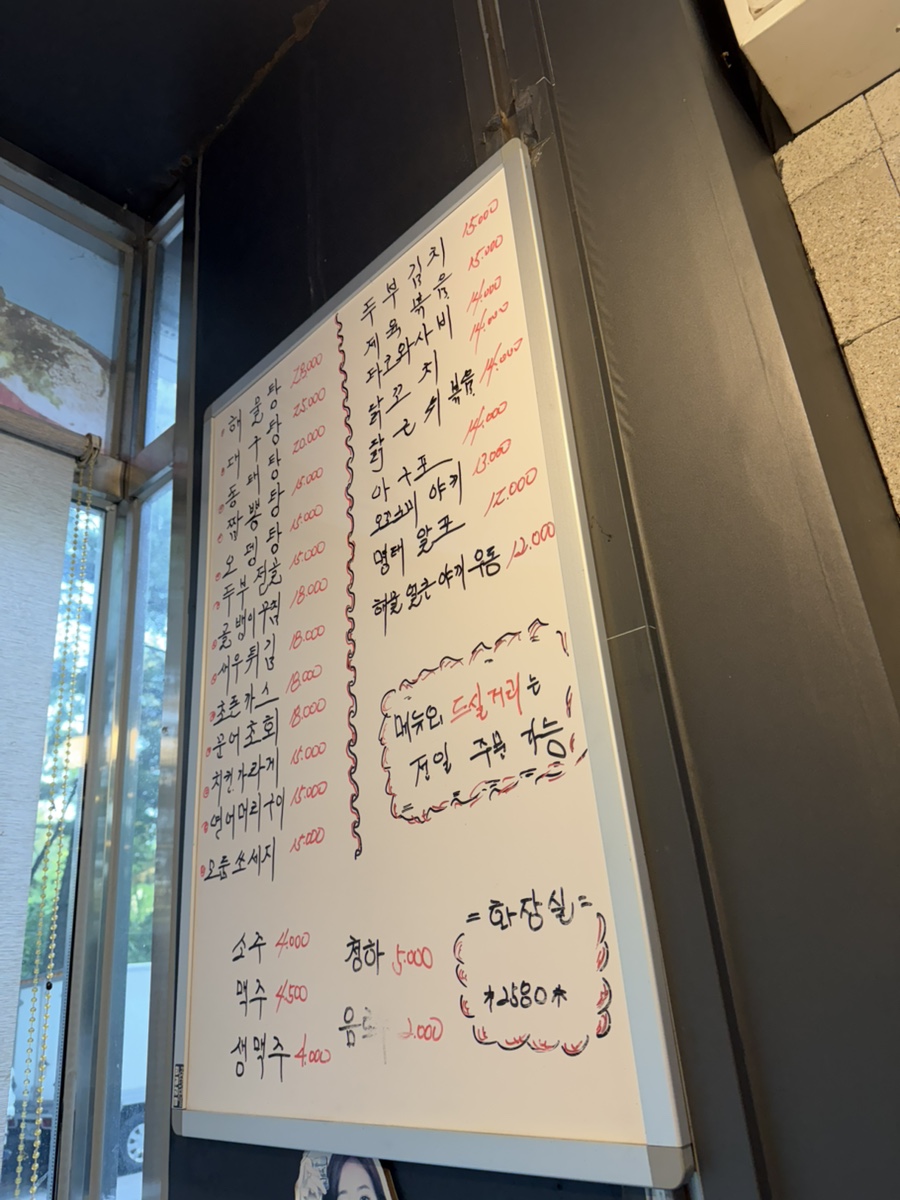 해물탕 23.000
대구탕 25.000
동태탕 20.000
짬뽕탕 15.000
오뎅탕 15.000
두부전골 15.000
골뱅이무침 18.000
새우튀김 18.000
초촌카스 18.000
문어초회 18.000
치킨가라게 15.000
연어머리구이 15.000
모듬쏘세지 15.000
두부김치 15.000
제육볶음 15.000
타코와사비 14.000
닭꼬치 14.000
닭근위볶음 14.000
아구포 14.000
오꼬노미야키 13.000
명태알포 12.000
해물얼큰야끼우동 12.000
메뉴외 드실거리는
전일 주문 가능
소주 4.000
맥주 4.500
생맥주 4.000
청하 5.000
음료 2.000
=화장실=
*2580*